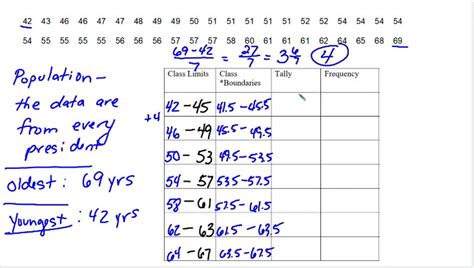 42 43 46 46 47 47 48 49 49 50 51 51 51 51 51 52 52 54 54 54 54
54 55 55 55 55 56 56 57 57 57 57 58 60 61 61 61 62 64 65 68 69
69-42/7 = 27/7 = 3 6/7 4
Population -
the data are
from every
president
Oldest: 69 yrs
Youngest: 42 yrs
Class Limits Class *Boundaries Tally Frequency
+4
42-45 41.5-45.5
46-49 45.5-49.5
50-53 49.5-53.5
54-57 53.5-57.5
58-61 57.5-61.5
62-63 61.5-63.5
64-67 63.5-67.5